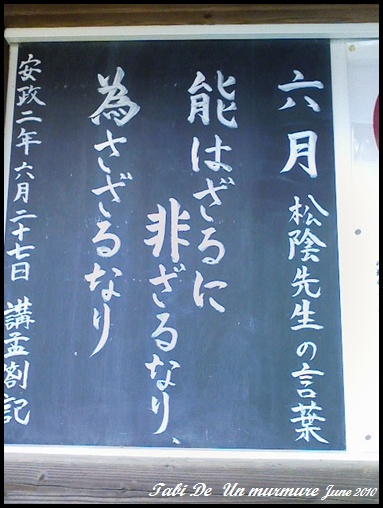 六月 松陰先生の言葉
能はざるに
非ざるなり、
為さざるなり
安政二年六月二十七日 講孟劄記
Tabi De Un murmure June 2010